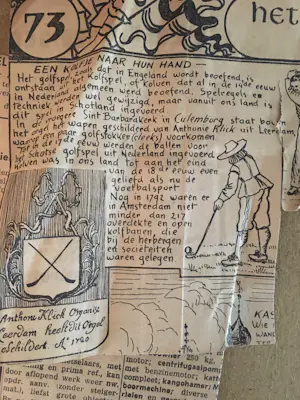 73
het
EEN KOLFJE NAAR HUN HAND —
Het golfspel, zoals dat in Engeland wordt beoefend, is
ontstaan uit het Kolfspel, of kolven dat al in de 14de eeuw
in Nederland algemeen werd beoefend. Spelregels en
techniek werden wel gewijzigd, maar vanuit ons land is
dit spel in Schotland ingevoerd
In de vroegere Sint Barbarakerk in Culemborg staat boven
het orgel het wapen geschilderd van Anthonie Klick uit Leerdam,
waarin een paar golfstokken (cleeks) voorkomen
Tot in de 17de eeuw werden de ballen voor
het Schotse golfspel uit Nederland ingevoerd
Kolven was in ons land tot aan het eind
van de 18de eeuw even
geliefd als nu de
voetbalsport
Nog in 1792 waren er
in Amsterdam niet
minder dan 217
overdekte en open
kolfbanen, die
bij de herbergen
en sociëteiten
waren gelegen
Anthoni Klick Organist
Leerdam heeft dit Orgel
eschildert. Aº 1720
KAS
WIE
WAN
LEN
aar
op afloopend werk
opdr. aanv. (zonder steiger-
mat.), liefst grote objecten
motor; centrifugaalpomp
met benzinemotor; kamp
compleet; kangohamer;
boormachine; diverse
rialen en
250 kg,